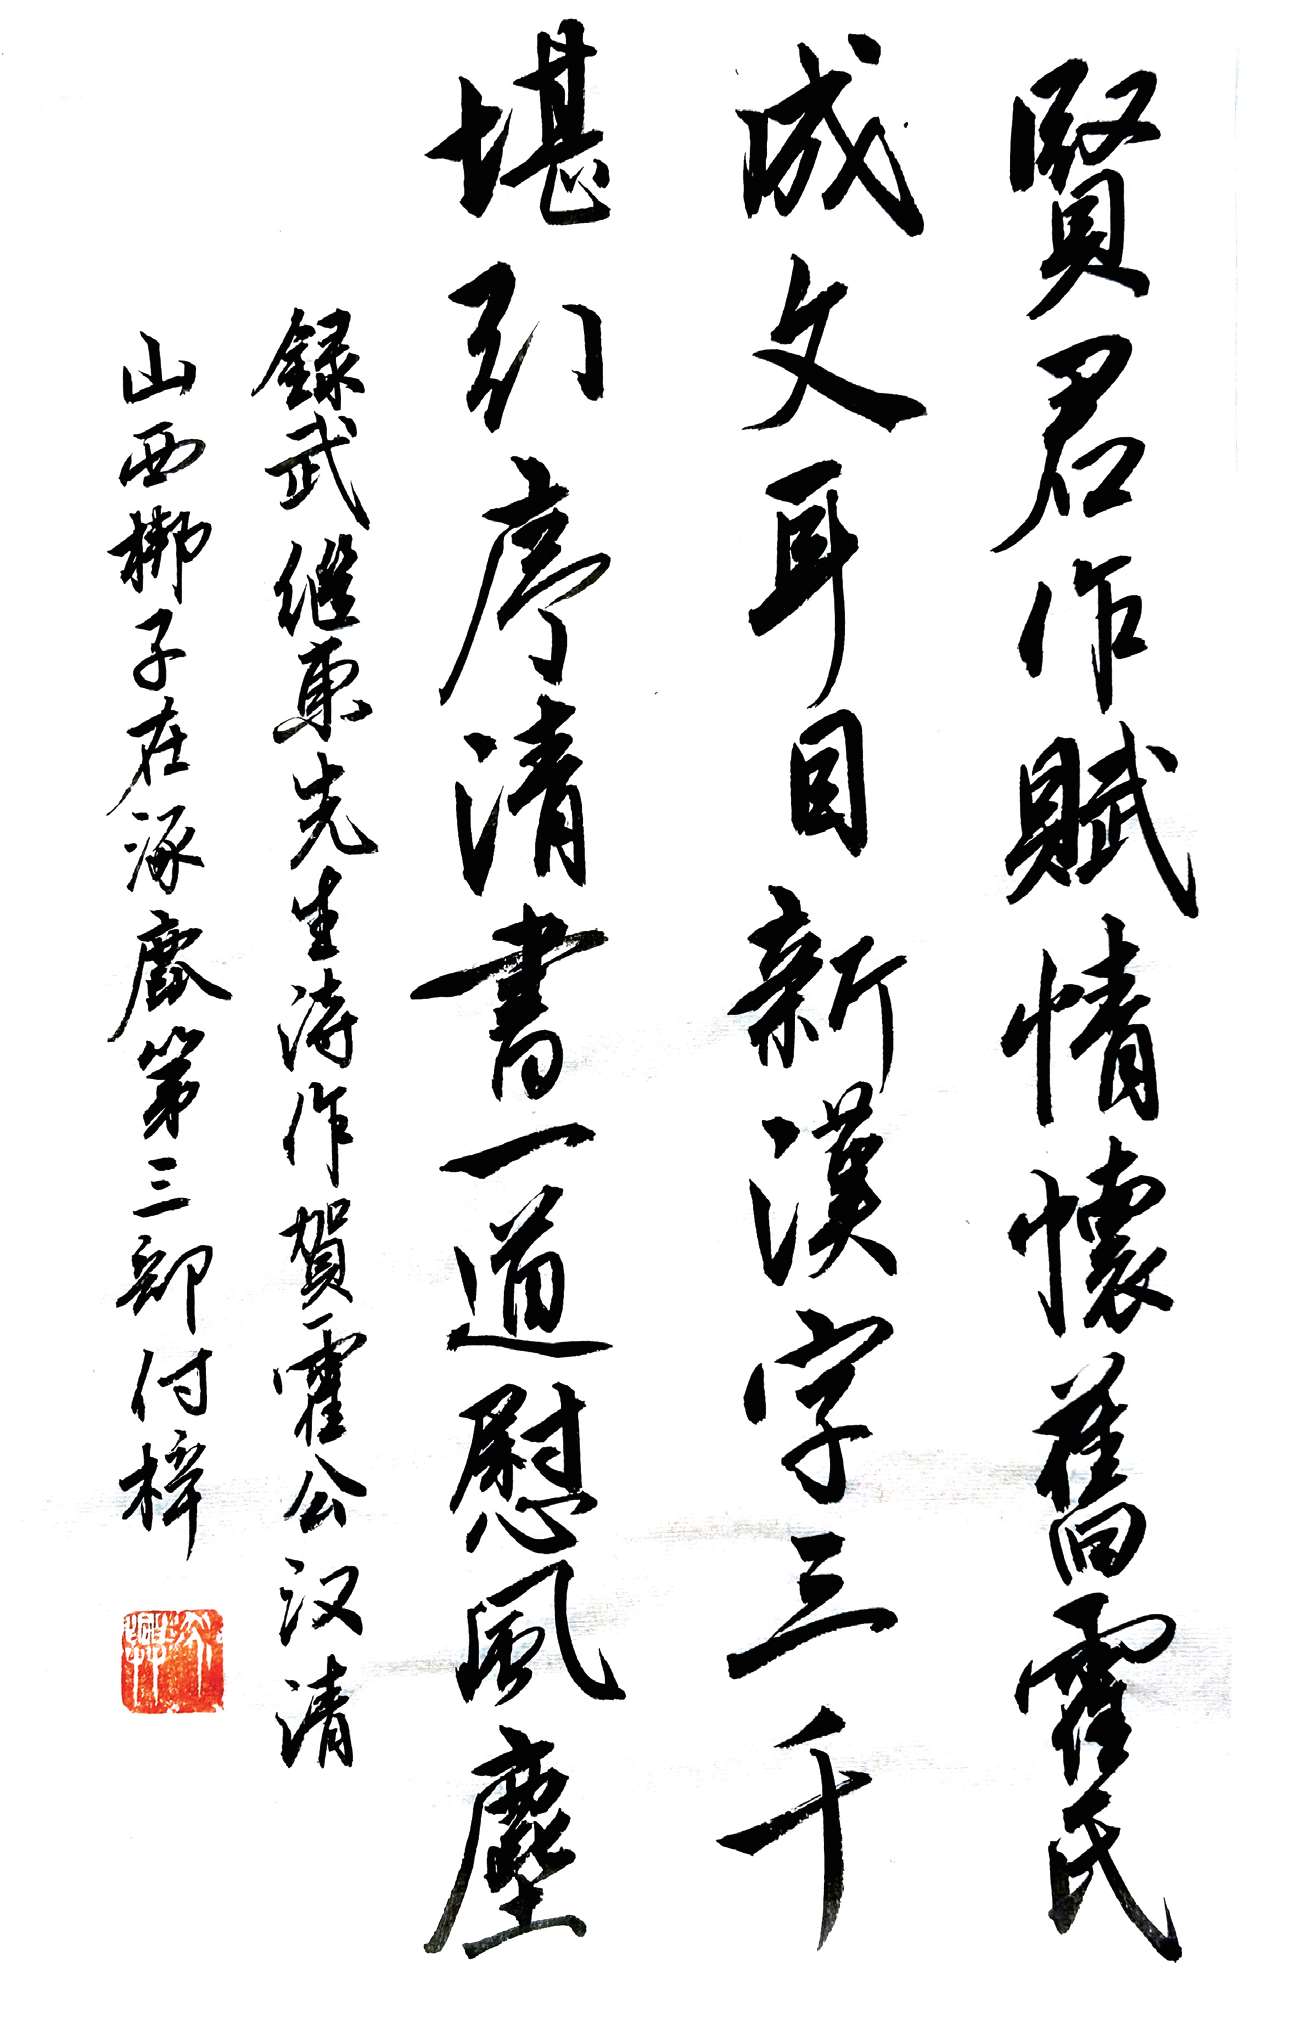 賢君作賦情懷舊霍氏
成文耳目新漢字三千
堪列序清書一道慰風塵
録武繼東先生詩作賀霍公汉清
山西梆子在涿鹿第三部付梓